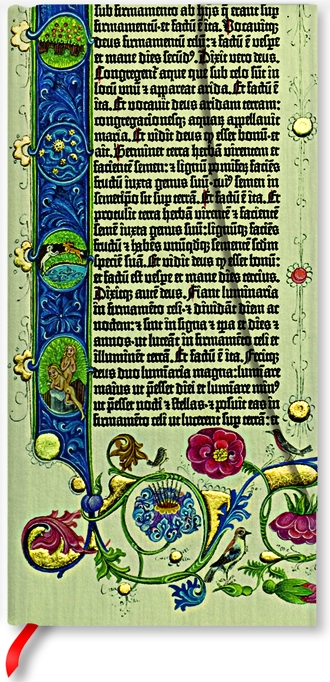 sub firmamento ab hijs q̄ erant sup
firmamentū: et factū ē ita. Vocavitq;
deus firmamentū celū: ⁊ factū ē vespe
et mane dies secūd'. Dixit vero deus.
Congregent aque que sub celo sūt in
locū unū ⁊ appareat arida. Et factū ē
ita. Et vocavit deus aridam terram:
congregacionesq; aquarū appellavit
maria. Et vidit deus q̄ esset bonū· et
ait. Germinet terra herbā virentem et
facientē semen: ⁊ lignū pomifeū faciēs
fructū iuxta genus suū· cui' semen in
semetipo sit sup terrā. Et factū ē ita. Et
protulit terra herbā virentē ⁊ facientē
semē iuxta genus suū: lignūq; faciēs
fructū ⁊ habēs unūqdq; sementē scdm
speciē suā. Et vidit deus q̄ esset bonū:
et factū est vespe et mane dies tercius.
Dixitq; autē deus. Fiant luminaria
in firmamēto celi· ⁊ dividāt diem ac
noctem: ⁊ sint in signa ⁊ tpa ⁊ dies ⁊
annos· ut luceāt in firmamēto celi et
illuminēt terrā. Et factū ē ita. Fecitq;
deus duo luminaria magna: lumīare
maius ut p̄esset diei et lumīare min'
ut p̄esset nocti ⁊ stellas· ⁊ posuit eas in
firmamēto celi ut lucerent sup terrā: et